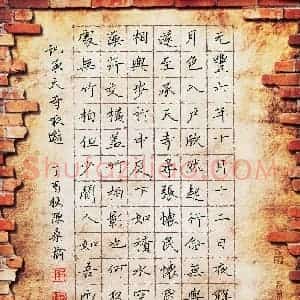 元豐六年十月十二日夜解
月色入戶欣然起行念無與
遂至承天寺尋張懷民懷民
相與步於中庭下如積水空
藻荇交橫蓋竹柏影也何
處無竹柏但少閒人如吾兩
記承天寺夜遊